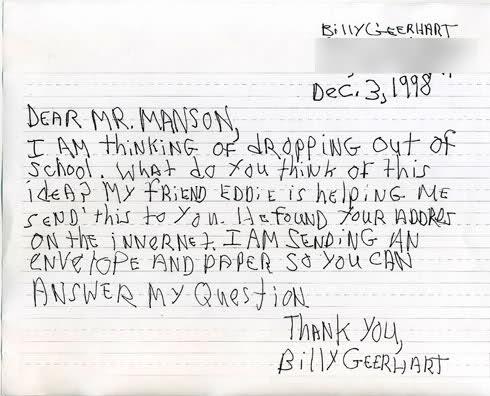 BILLY GEERHART
DEC. 3, 1998
DEAR MR. MANSON,
I AM thINKING OF dROPPING Out OF
School. What do You think of this
ideA? MY fRIEND EDDIE is helPING ME
SEND this to You. He fOUND YOUR ADDRES
ON the INNERNET. I AM SENDING AN
ENVElOPE AND PAPER SO YOU CAN
ANSWER MY QuestION.
THANK YOU,
BIlly GEERHART